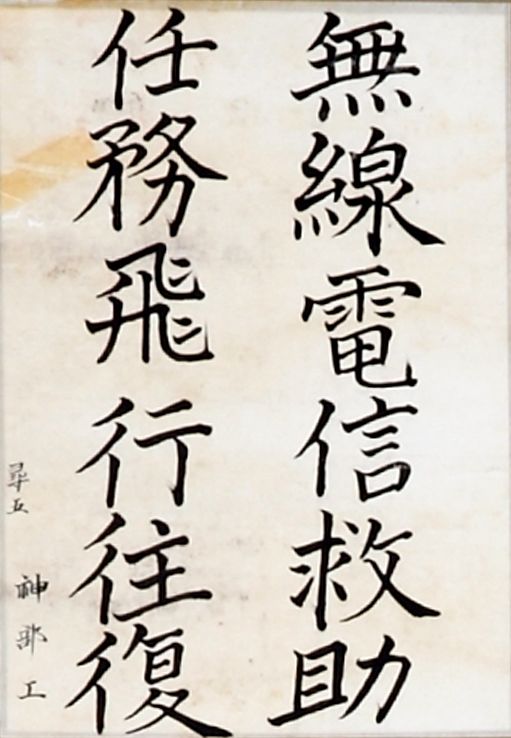 無線電信救助
任務飛行往復
尋五
神部工